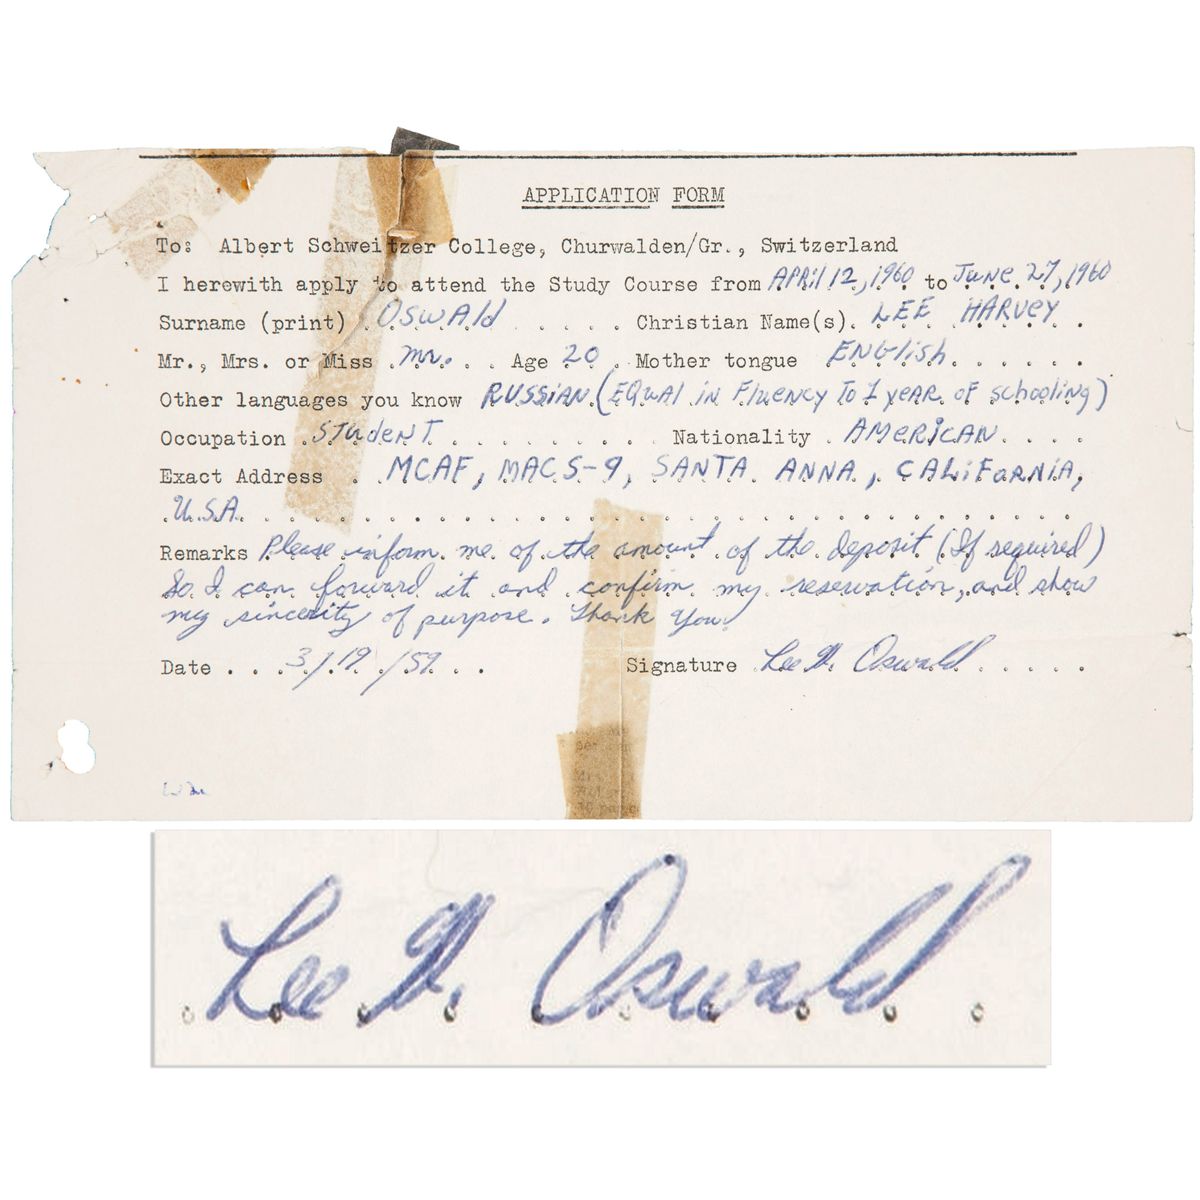 APPLICATION FORM
To: Albert Schweitzer College, Churwalden/Gr., Switzerland
I herewith apply to attend the Study Course from APRIL 12, 1960 to June 27, 1960
Surname (print) OSWAld . . . . . Christian Name(s). LEE HARVEY .
Mr., Mrs. or Miss . mr. . . Age 20 . Mother tongue ENGlish . . . . . . .
Other languages you know RUSSIAN (EQUAL in Fluency To 1 year of schooling)
Occupation . STUdeNT . . . . . . . . . Nationality . AMERICAN . . . .
Exact Address . MCAF, MACS-9, SANTA ANNA, CALIFORNIA,
U.S.A.
Remarks Please inform me of the amount of the deposit (If required)
So I can forward it and confirm my reservation, and show
my sincerity of purpose. Thank You.
Date . . . 3/19/59 . . Signature Lee H. Oswald . . . . .
Lee H. Oswald